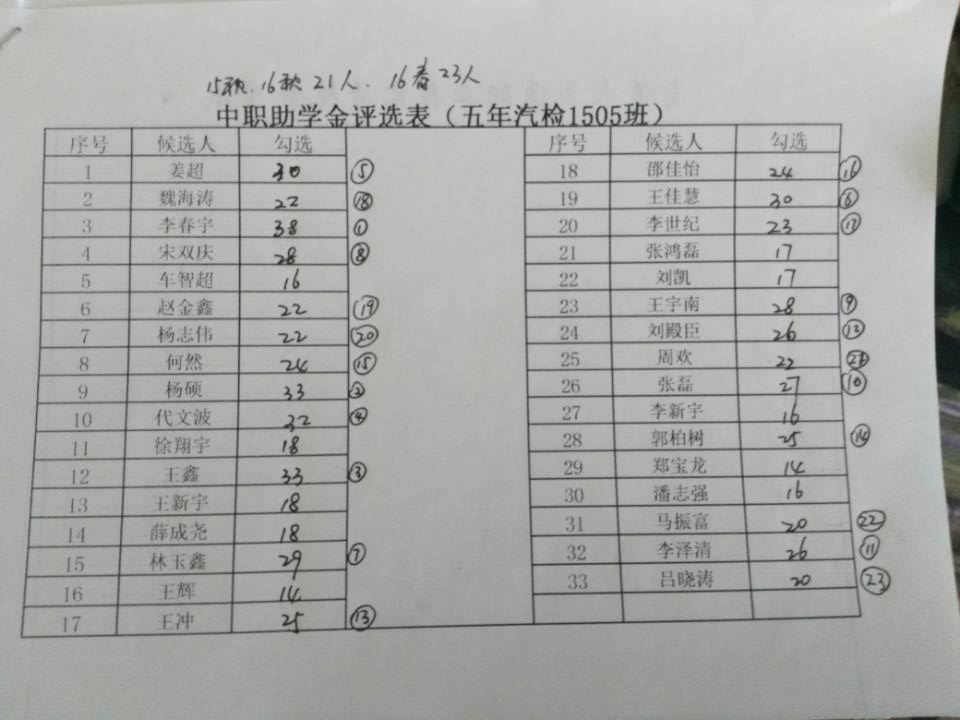 15秋.16秋21人. 16春23人
中职助学金评选表（五年汽检1505班）
序号 候选人 勾选 序号 候选人 勾选
1 姜超 30 ⑤ 18 邵佳怡 24 ⑯
2 魏海涛 22 ⑱ 19 王佳慧 30 ⑥
3 李春宇 38 ① 20 李世纪 23 ⑰
4 宋双庆 28 ⑧ 21 张鸿磊 17
5 车智超 16 22 刘凯 17
6 赵金鑫 22 ⑲ 23 王宇南 28 ⑨
7 杨志伟 22 ⑳ 24 刘殿臣 26 ⑫
8 何然 24 ⑮ 25 周欢 22
9 杨硕 33 ② 26 张磊 27 ⑩
10 代文波 32 ④ 27 李新宇 16
11 徐翔宇 18 28 郭柏树 25 ⑭
12 王鑫 33 ③ 29 郑宝龙 14
13 王新宇 18 30 潘志强 16
14 薛成尧 18 31 马振富 20 ㉒
15 林玉鑫 29 ⑦ 32 李泽清 26 ⑪
16 王辉 14 33 吕晓涛 20 ㉓
17 王冲 25 ⑬